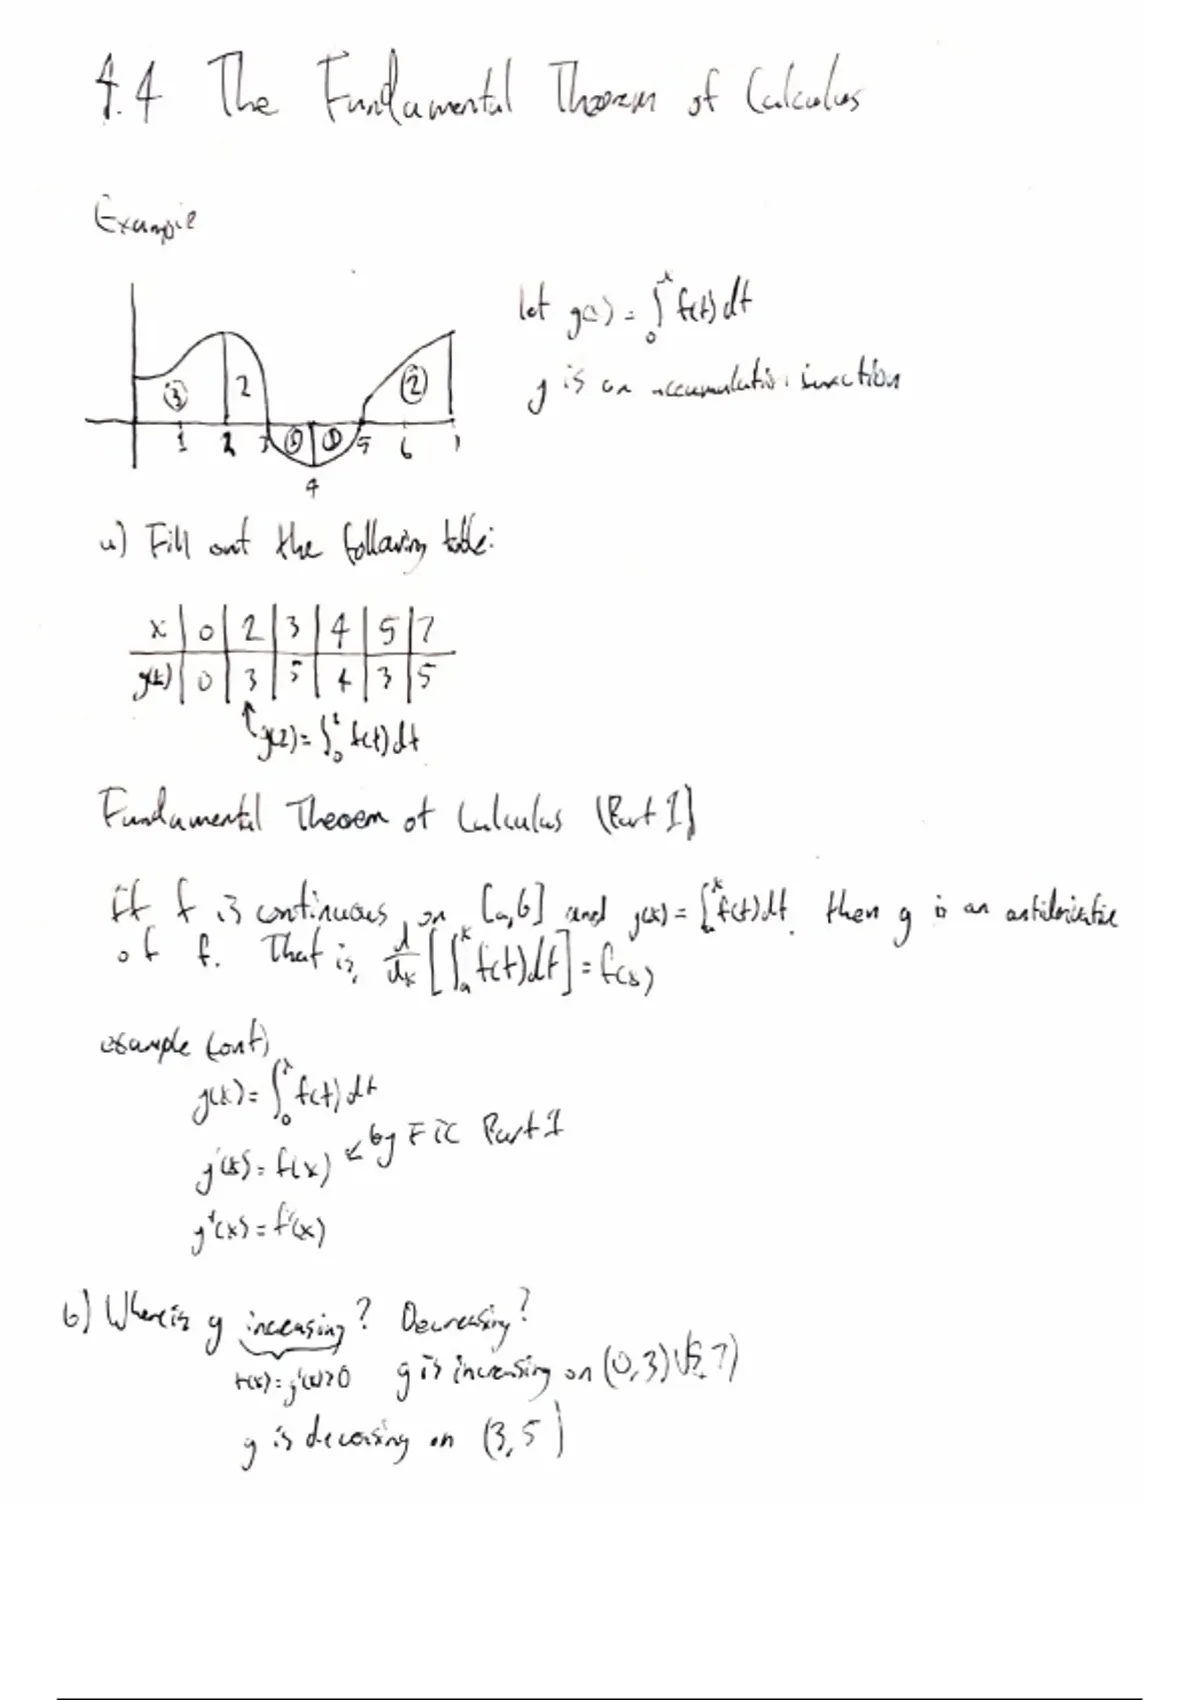 4.4 The Fundamental Theorem of Calculus
Example
let g(x) = ∫₀ˣ f(t) dt
g is an accumulation function
③ 2 ① ① ②
1 2 3 4 5 6 7
a) Fill out the following table:
x | 0 | 2 | 3 | 4 | 5 | 7
g(x) | 0 | 3 | 5 | 4 | 3 | 5
g(2) = ∫₀² f(t) dt
Fundamental Theorem of Calculus (Part 1)
If f is continuous on [a,b] and g(x) = ∫ₐˣ f(t) dt, then g is an antiderivative
of f. That is, d/dx [∫ₐˣ f(t) dt] = f(x)
example (cont)
g(x) = ∫₀ˣ f(t) dt
g'(x) = f(x) ↙ by FTC Part 1
g''(x) = f'(x)
b) Where is g increasing? Decreasing?
f(x) = g'(x) > 0 g is increasing on (0,3)∪(5,7)
g is decreasing on (3,5)